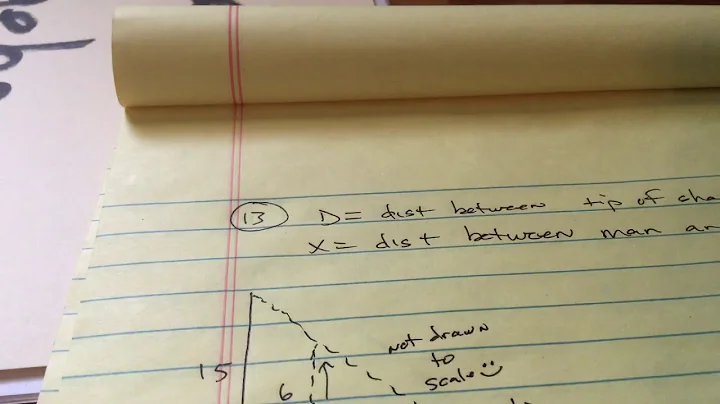 13 D = dist between tip of
X = dist between man
not drawn
to
scale
15
6